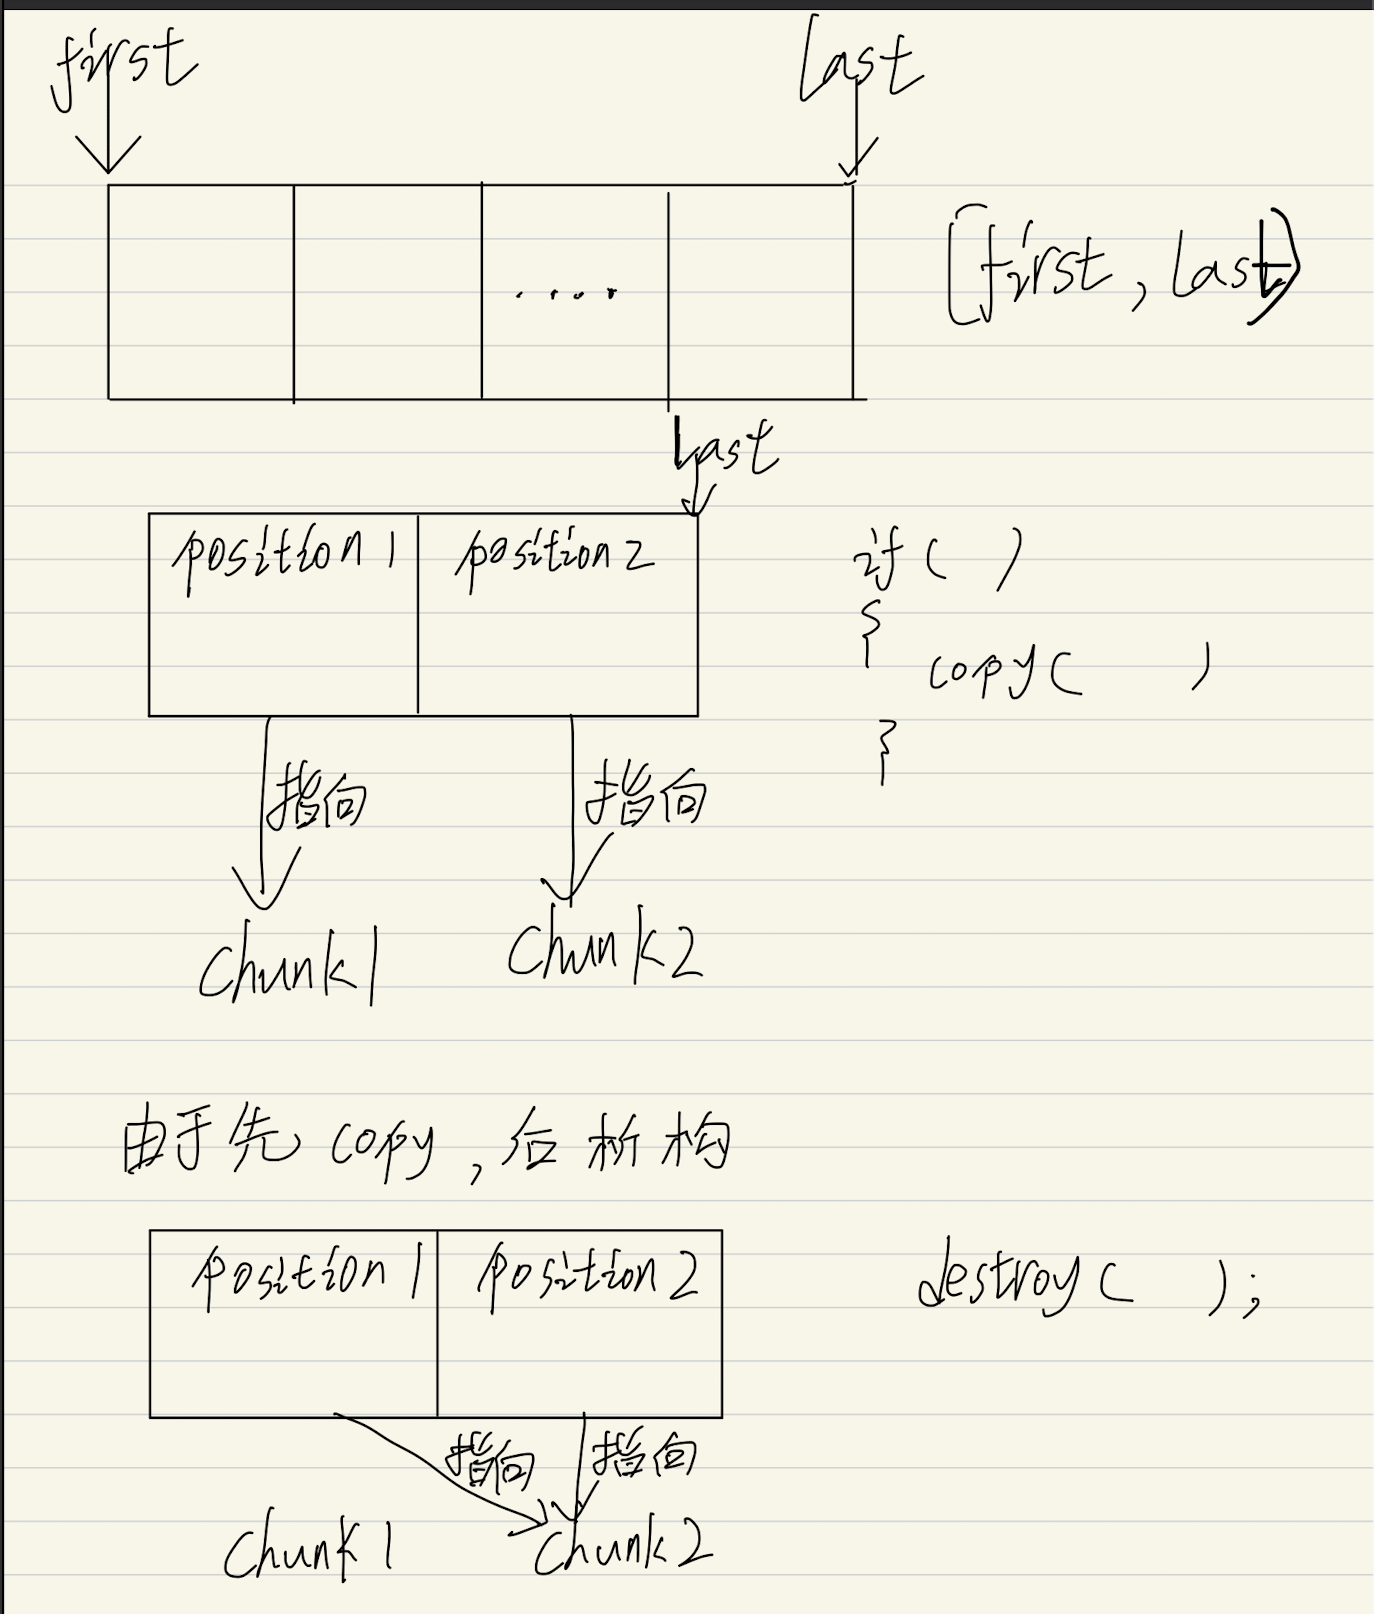 first
last
....
[first, last)
last
position1 position2
if( )
{
copy( )
}
指向 指向
chunk1 chunk2
由于先 copy, 后析构
position1 position2
destroy( );
指向 指向
chunk1 chunk2